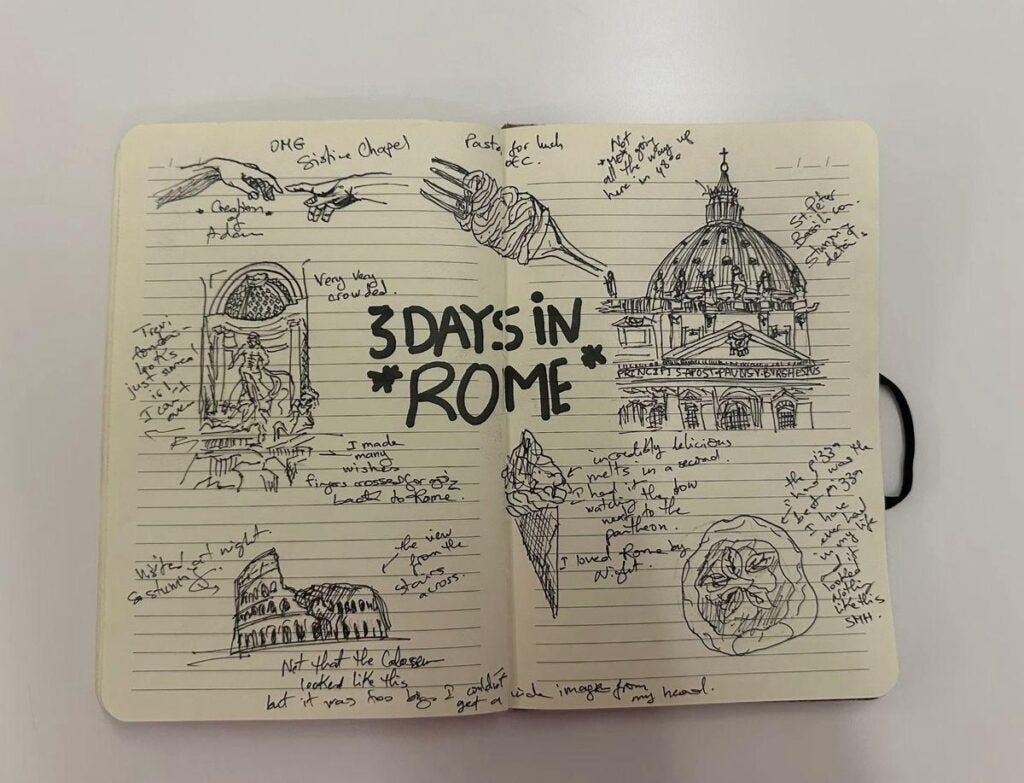 OMG
Sistine Chapel
*Creation
of
Adam
Pasta for lunch
etc.
Not
going
all the way up
here in 48°
St. Peter
Basilica.
Stunning
details
Very very
crowded.
Trevi
just
is
I can't
even
3 DAYS IN
*ROME*
PRINCIPIS APOST PAVLVS V BVRGHESIVS
I made
many
wishes
fingers crossed for
back to Rome.
incredibly delicious
melts in a second.
I had it
watching the
next to the
pantheon.
I loved Rome by
night.
the pizza
I had was the
best pizza
I have
ever had
in my life
looked
nothing
like this
SMH.
Visited at night.
So stunning
the view
from the
stairs
across.
Not that the Colosseum
looked like this
but it was too big I couldn't
get a wide image from
my head.